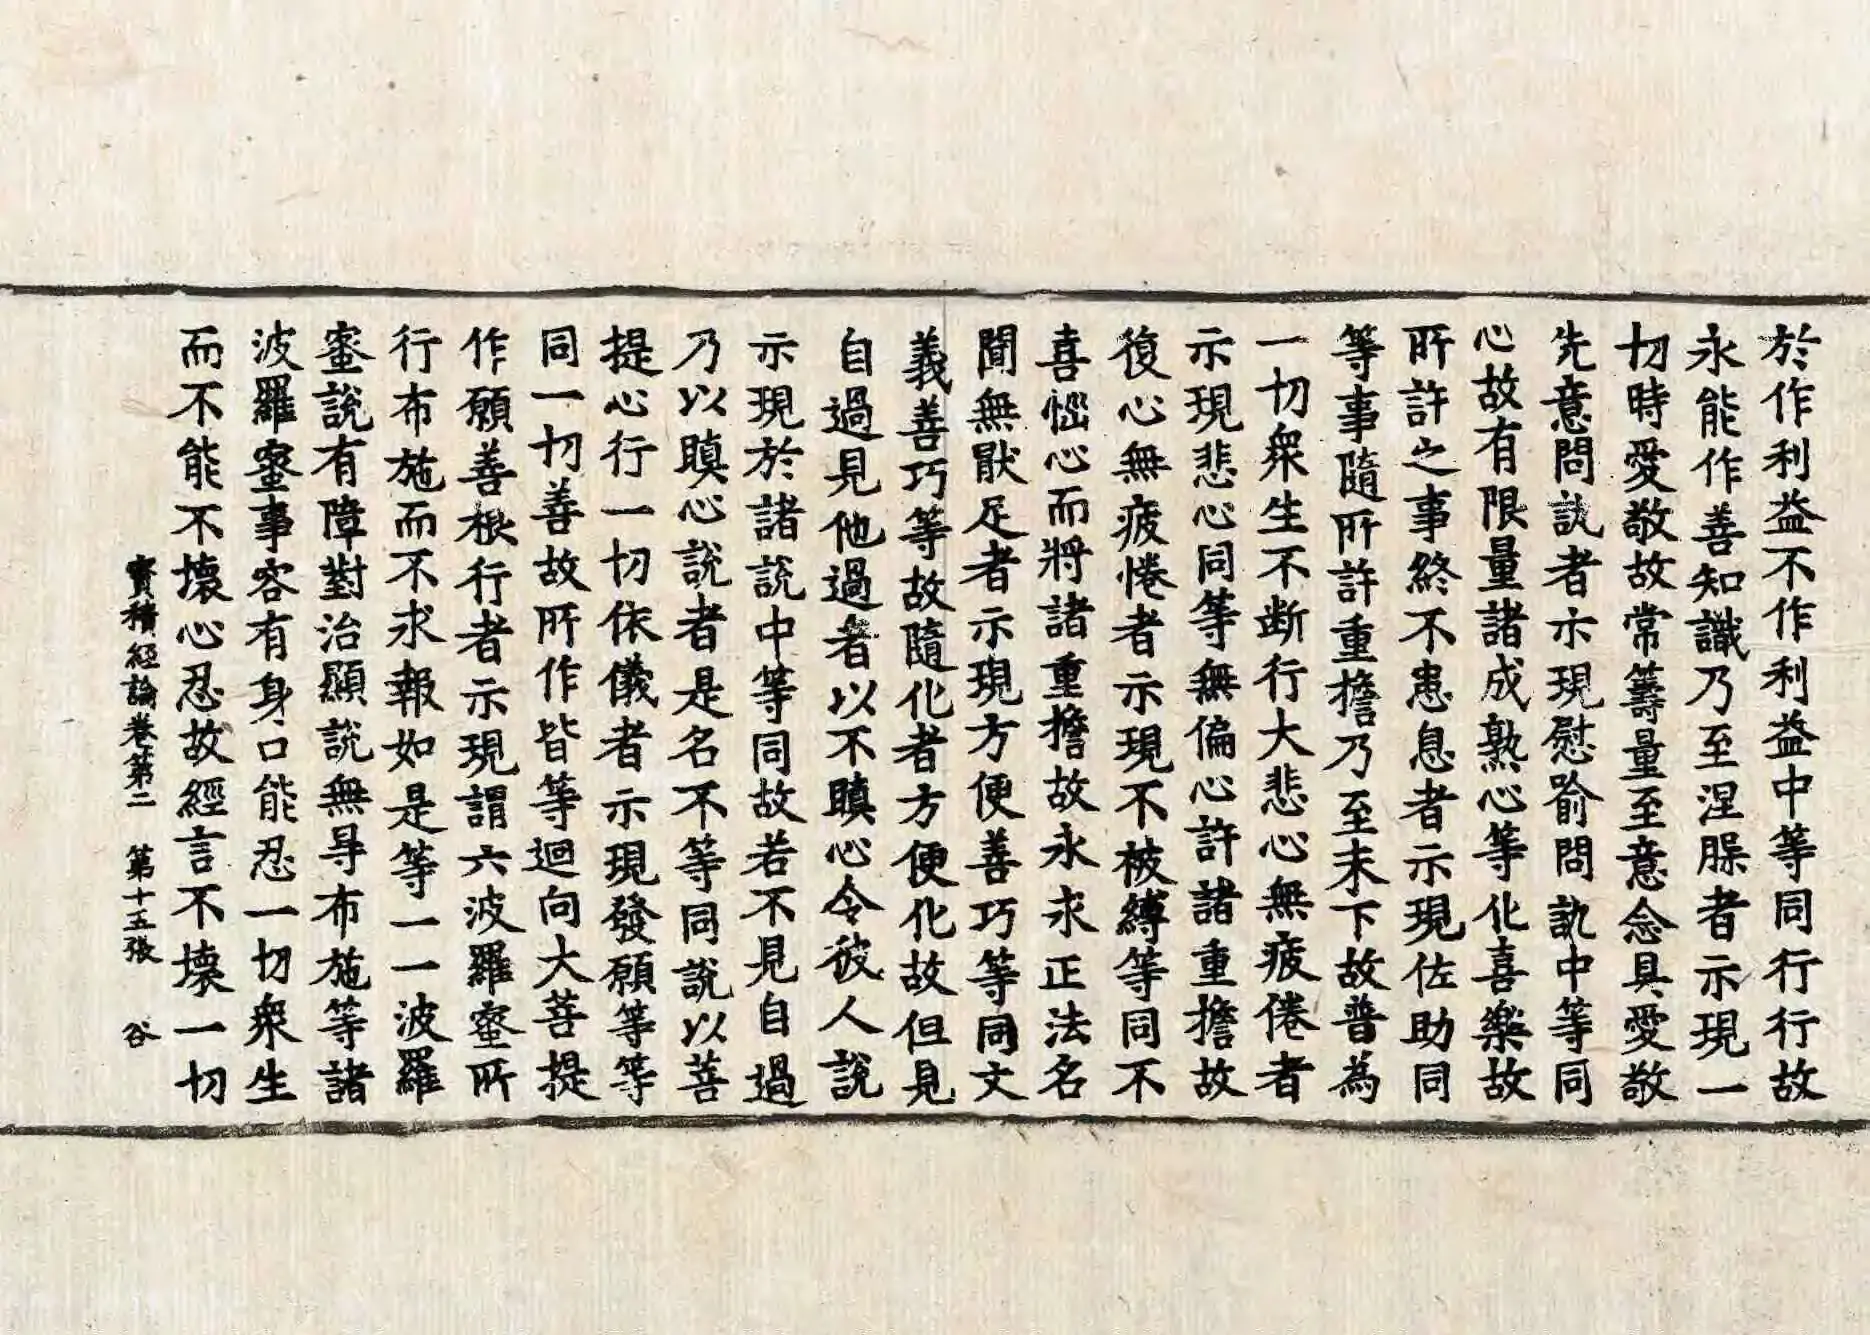 於作利益不作利益中等同行行故
永能作善知識乃至涅槃者示現一
切時愛敬故常籌量至意念具愛敬
先意問訊者示現慰喻問訊中等同
心故有限量諸成熟心等化喜樂故
所許之事終不恚息者示現佐助同
等事隨所許重擔乃至未下故普為
一切衆生不斷行大悲心無疲倦者
示現悲心同等無偏心許諸重擔故
復心無疲惓者示現不被縛等同不
喜惱心而將諸重擔故永求正法名
聞無猒足者示現方便善巧等同文
義善巧等故隨化者方便化故但見
自過見他過者以不瞋心令彼人說
示現於諸說中等同故若不見自過
乃以瞋心說者是名不等同說以菩
提心行一切依儀者示現發願等等
同一切善故所作皆等迴向大菩提
作願善根行者示現謂六波羅蜜所
行布施而不求報如是等一一波羅
蜜說有障對治顯說無㝵布施等諸
波羅蜜事容有身口能忍一切衆生
而不能不壞心忍故經言不壞一切
寶積經論卷第二 第十五張 谷